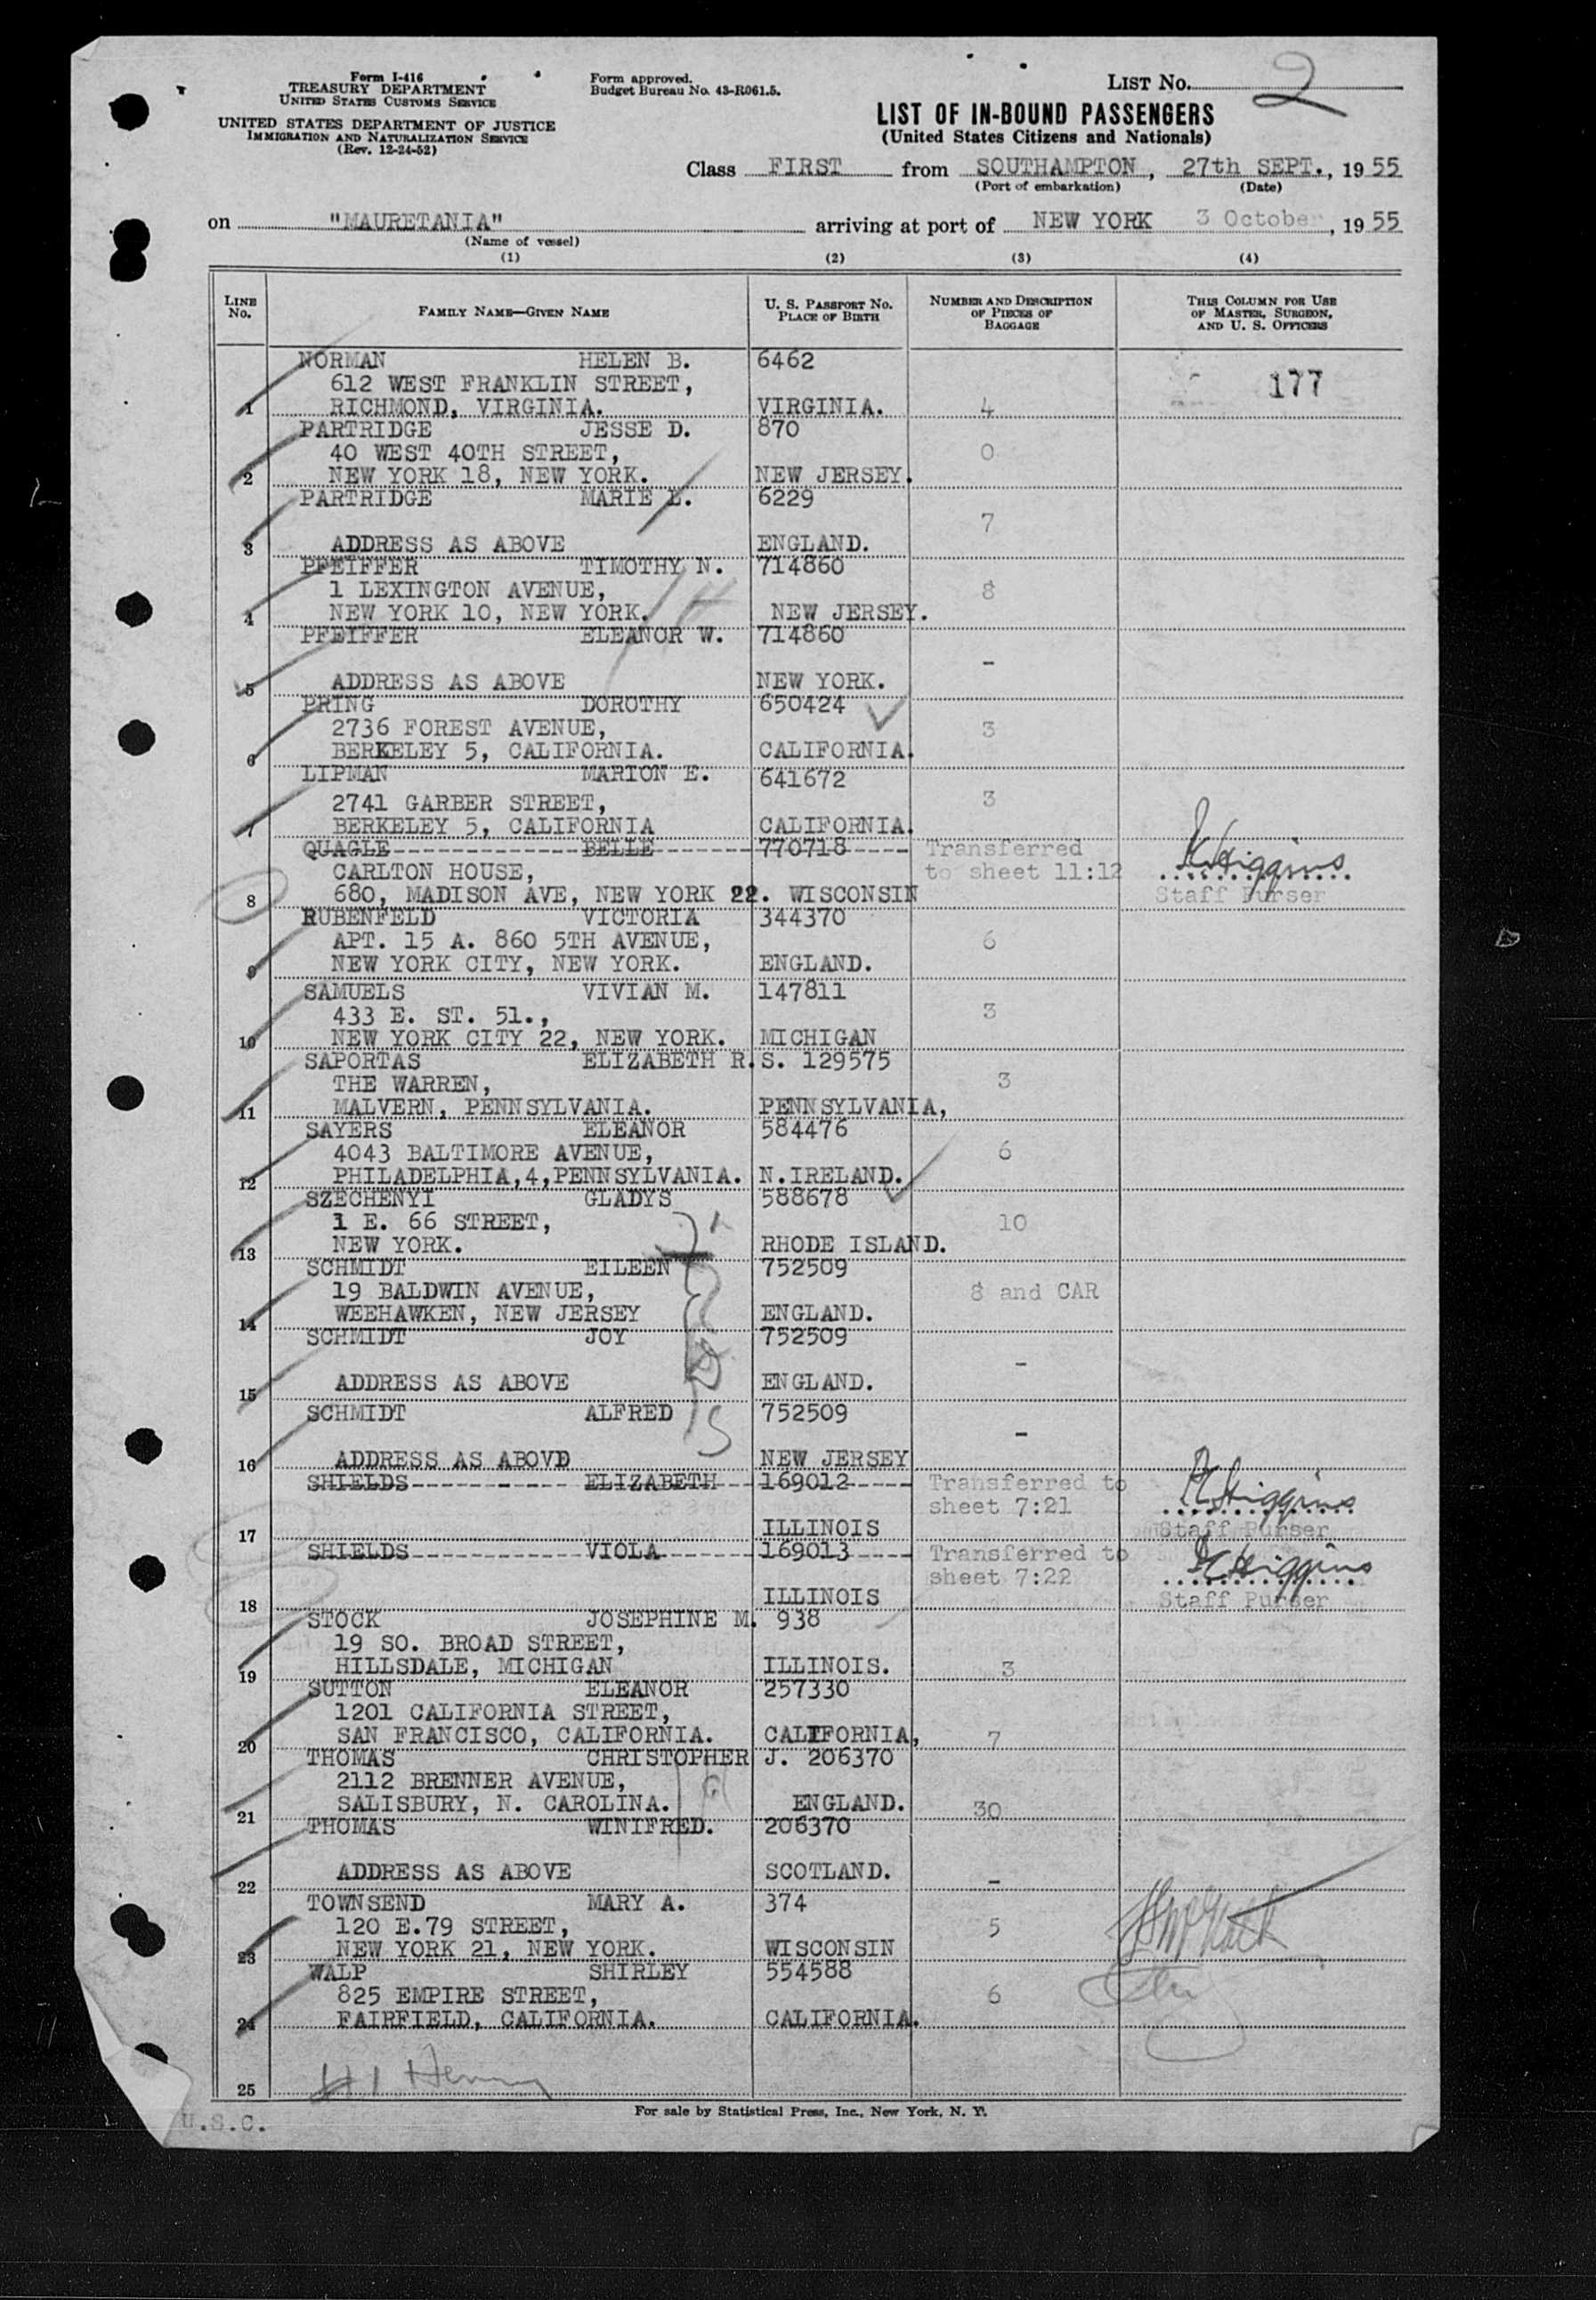 Form I-416
TREASURY DEPARTMENT
UNITED STATES CUSTOMS SERVICE
UNITED STATES DEPARTMENT OF JUSTICE
IMMIGRATION AND NATURALIZATION SERVICE
(Rev. 12-24-52)
Form approved.
Budget Bureau No. 43-R061.5.
LIST No. 2
LIST OF IN-BOUND PASSENGERS
(United States Citizens and Nationals)
Class FIRST from SOUTHAMPTON, 27th SEPT., 1955
(Port of embarkation) (Date)
on "MAURETANIA" arriving at port of NEW YORK 3 October, 1955
(Name of vessel)
(1) (2) (3) (4)
LINE No. FAMILY NAME—GIVEN NAME U. S. PASSPORT No. PLACE OF BIRTH NUMBER AND DESCRIPTION OF PIECES OF BAGGAGE THIS COLUMN FOR USE OF MASTER, SURGEON, AND U. S. OFFICERS
NORMAN HELEN B. 6462
612 WEST FRANKLIN STREET, 177
1 RICHMOND, VIRGINIA. VIRGINIA. 4
PARTRIDGE JESSE D. 870
40 WEST 40TH STREET, 0
2 NEW YORK 18, NEW YORK. NEW JERSEY.
PARTRIDGE MARIE L. 6229
7
3 ADDRESS AS ABOVE ENGLAND.
PFEIFFER TIMOTHY N. 714860
1 LEXINGTON AVENUE, 8
4 NEW YORK 10, NEW YORK. NEW JERSEY.
PFEIFFER ELEANOR W. 714860
-
5 ADDRESS AS ABOVE NEW YORK.
PRING DOROTHY 650424
2736 FOREST AVENUE, 3
6 BERKELEY 5, CALIFORNIA. CALIFORNIA.
LIPMAN MARION E. 641672
2741 GARBER STREET, 3
7 BERKELEY 5, CALIFORNIA CALIFORNIA.
QUAGLE BELLE 770718 Transferred
CARLTON HOUSE, to sheet 11:12 Higgins
8 680, MADISON AVE, NEW YORK 22. WISCONSIN Staff Purser
RUBENFELD VICTORIA 344370
APT. 15 A. 860 5TH AVENUE, 6
9 NEW YORK CITY, NEW YORK. ENGLAND.
SAMUELS VIVIAN M. 147811
433 E. ST. 51., 3
10 NEW YORK CITY 22, NEW YORK. MICHIGAN
SAPORTAS ELIZABETH R.S. 129575
THE WARREN, 3
11 MALVERN, PENNSYLVANIA. PENNSYLVANIA,
SAYERS ELEANOR 584476
4043 BALTIMORE AVENUE, 6
12 PHILADELPHIA,4,PENNSYLVANIA. N.IRELAND.
SZECHENYI GLADYS 588678
1 E. 66 STREET, 10
13 NEW YORK. RHODE ISLAND.
SCHMIDT EILEEN 752509
19 BALDWIN AVENUE, 8 and CAR
14 WEEHAWKEN, NEW JERSEY ENGLAND.
SCHMIDT JOY 752509
-
15 ADDRESS AS ABOVE ENGLAND.
SCHMIDT ALFRED 752509
-
16 ADDRESS AS ABOVD NEW JERSEY
SHIELDS ELIZABETH 169012 Transferred to
sheet 7:21 Higgins
17 ILLINOIS Staff Purser
SHIELDS VIOLA 169013 Transferred to
sheet 7:22 Higgins
18 ILLINOIS Staff Purser
STOCK JOSEPHINE M. 938
19 SO. BROAD STREET,
19 HILLSDALE, MICHIGAN ILLINOIS. 3
SUTTON ELEANOR 257330
1201 CALIFORNIA STREET,
20 SAN FRANCISCO, CALIFORNIA. CALIFORNIA, 7
THOMAS CHRISTOPHER J. 206370
2112 BRENNER AVENUE,
21 SALISBURY, N. CAROLINA. ENGLAND. 30
THOMAS WINIFRED. 206370
22 ADDRESS AS ABOVE SCOTLAND. -
TOWNSEND MARY A. 374
120 E.79 STREET, 5
23 NEW YORK 21, NEW YORK. WISCONSIN
WALP SHIRLEY 554588
825 EMPIRE STREET, 6
24 FAIRFIELD, CALIFORNIA. CALIFORNIA.
25
For sale by Statistical Press, Inc., New York, N. Y.
U.S.C.